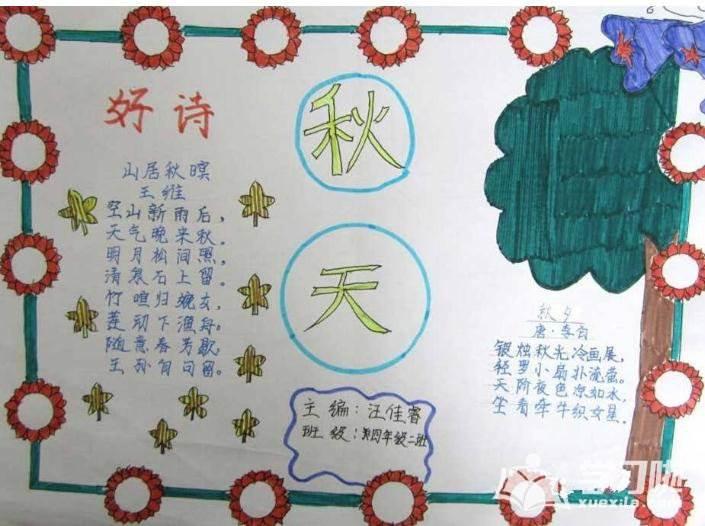 好诗
山居秋暝
王维
空山新雨后，
天气晚来秋。
明月松间照，
清泉石上留。
竹喧归晚女，
莲动下渔舟。
随意春芳歇，
王孙自可留。
秋
天
主编：汪佳睿
班级：第四年级二班
秋夕
唐·李白
银烛秋光冷画屏，
轻罗小扇扑流萤。
天阶夜色凉如水，
坐看牵牛织女星。
学习啦
xuexila.com